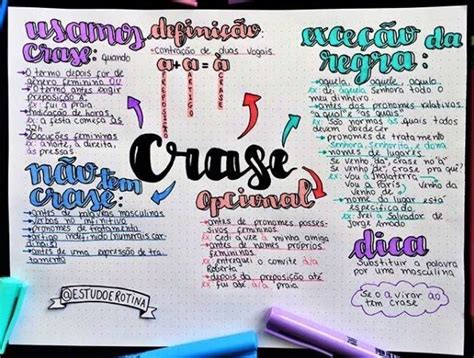 usamos
crase: quando
→ O termo depois for de
gênero feminino OU
→ O termo antes exigir
preposição A
ex: fui à praia
→ Indicação de horas
ex: a festa começa às
22h
→ locuções femininas
ex: à noite, à direita,
às pressas
definição
→ contração de duas vogais
a+a=à
PREPOSIÇÃO
ARTIGO
CRASE
exceção da
regra:
→ àquela, àquele, àquilo
ex: dei àquela senhora todo o
meu dinheiro
→ antes dos pronomes relativos
"a qual" e "as quais"
ex: São normas às quais todos
devem obedecer
→ pronomes de tratamento
senhora, senhorita, e dona
→ nomes de lugares
Se venho da, crase no "a"
Se venho de, crase pra que?
ex: Vou à Inglaterra
Vou a Paris
→ nome do lugar está
especificado
ex: Irei à Salvador de
Jorge Amado
Crase
não tem
crase:
→ antes de palavras masculinas
→ verbos no infinitivo
→ pronomes de tratamento
→ artigo indefinido (numerais
→ antes de uma expressão de tra-
tamento
opcional
→ antes de pronomes posses-
sivos femininos
ex: Cedi à vez a minha amiga
→ antes de nomes próprios
femininos
ex: entreguei o convite à/a
Roberta
→ depois da preposição até
ex: fui até à/a praia
dica
Substituir a palavra
por uma masculina
Se o a virar ao
tem crase
@ESTUDOEROTINA